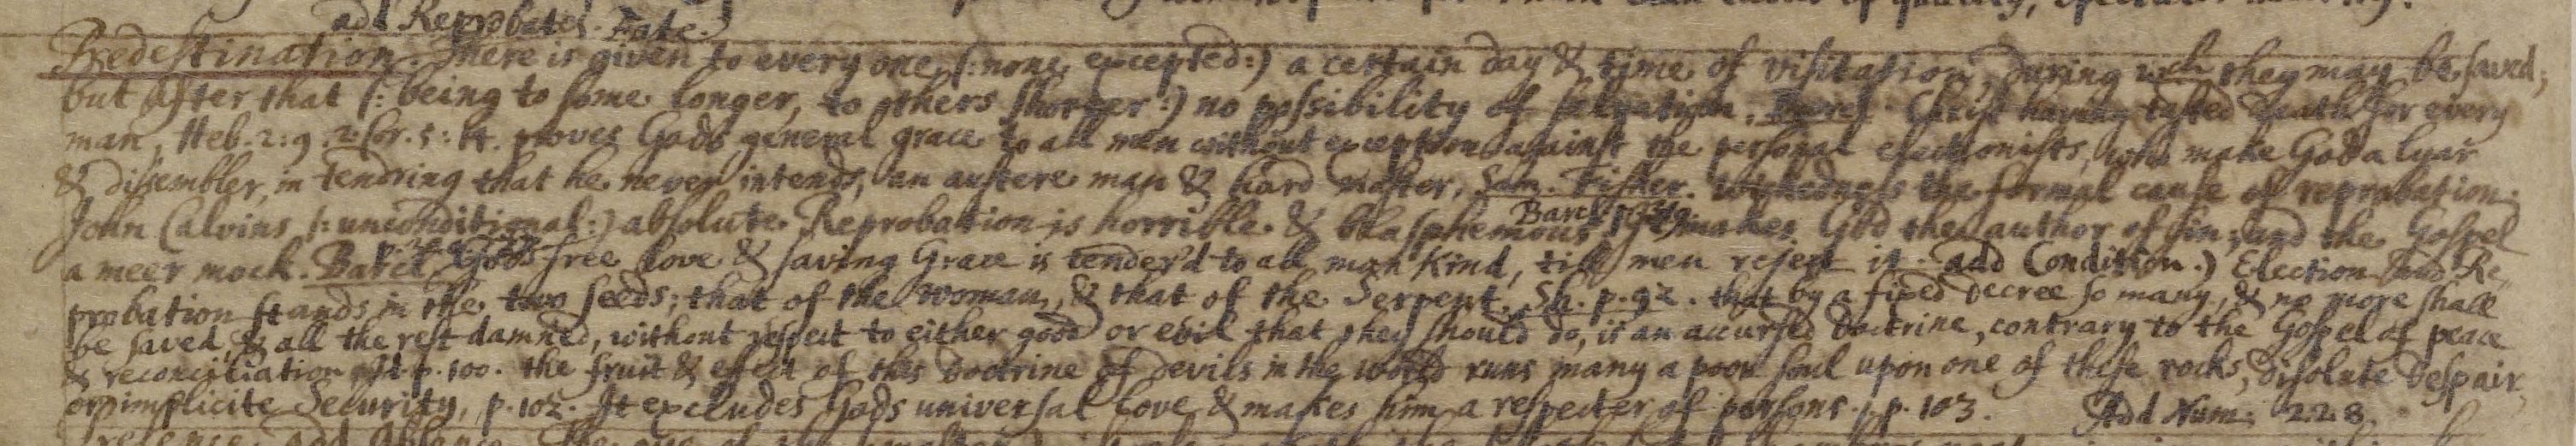 add Reprobates. Fate.
Predestination. There is given to every one (: none excepted :) a certain day & time of visitation, during wch they may be saved;
but after that (: being to some longer, to others shorter :) no possibility of salvation. Barcl. Christ having tasted death for every
man, Heb. 2: 9. 2. Cor. 5: 14. proves Gods general grace to all men without exception against the personal electionists, who make God a lyar
& dissembler, in tendring that he never intends, an austere man & hard Master, Sam. Fisher. Wickedness the formal cause of reprobation.
John Calvins (: unconditional :) absolute Reprobation is horrible & blasphemous, makes God the author of sin, and the Gospel
a meer mock. Barcl. Gods free love & saving Grace is tender'd to all man Kind, till men reject it. add Condition.) Election and Re-
probation stands in the two seeds; that of the woman, & that of the Serpent. Sh. p. 92. that by a fixed decree so many, & no more shall
be saved, & all the rest damned, without respect to either good or evil that they should do, is an accursed doctrine, contrary to the Gospel of peace
& reconciliation, Id. p. 100. the fruit & effect of this Doctrine of Devils in the world runs many a poor soul upon one of these rocks, disolute Despair,
or implicite Security, p. 102. It excludes Gods universal Love & makes him a respecter of persons. p. 103. Add Num. 228.